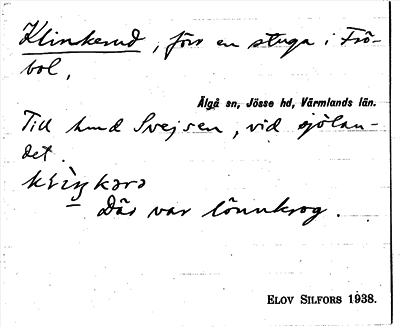 Klinkerud, förr en stuga i Frö-
bol,
Älgå sn, Jösse hd, Värmlands län.
Till hmd Svejsen, vid sjölan-
det.
Där var lönnkrog.
ELOV SILFORS 1938.